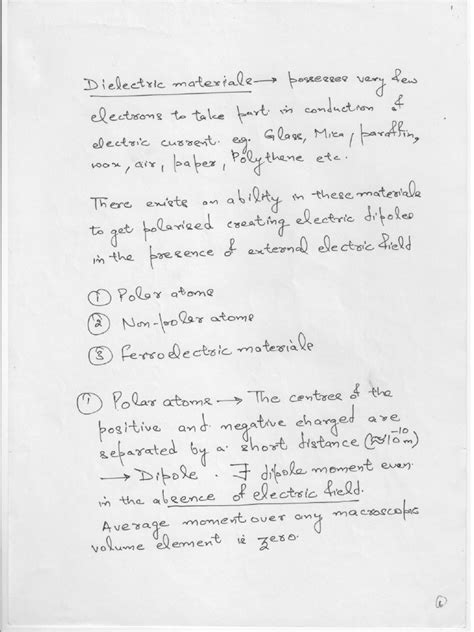 Dielectric materials → possesses very few
electrons to take part in conduction of
electric current. eg. Glass, Mica, paraffin,
wax, air, paper, Polythene etc.
There exists an ability in these materials
to get polarised creating electric dipoles
in the presence of external electric field
① Polar atoms
② Non-polar atoms
③ Ferroelectric materials
① Polar atoms → The centres of the
positive and negative charged are
separated by a short distance (≈10⁻¹⁰m)
→ Dipole. ∃ dipole moment even
in the absence of electric field.
Average moment over any macroscopic
volume element is zero.
①